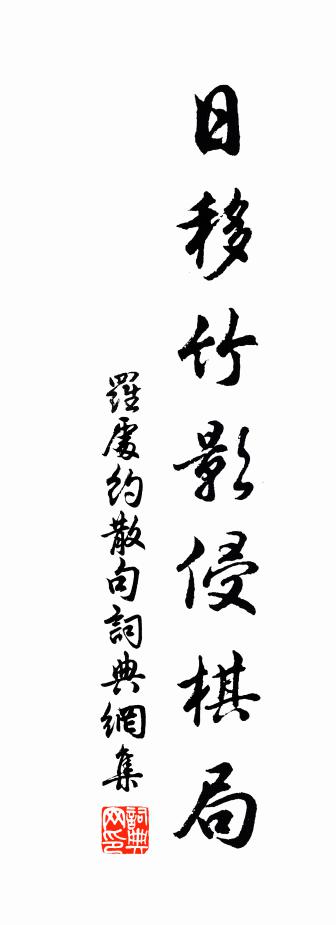 日移竹影侵棋局
羅處約散句詞典網集
詞典网印